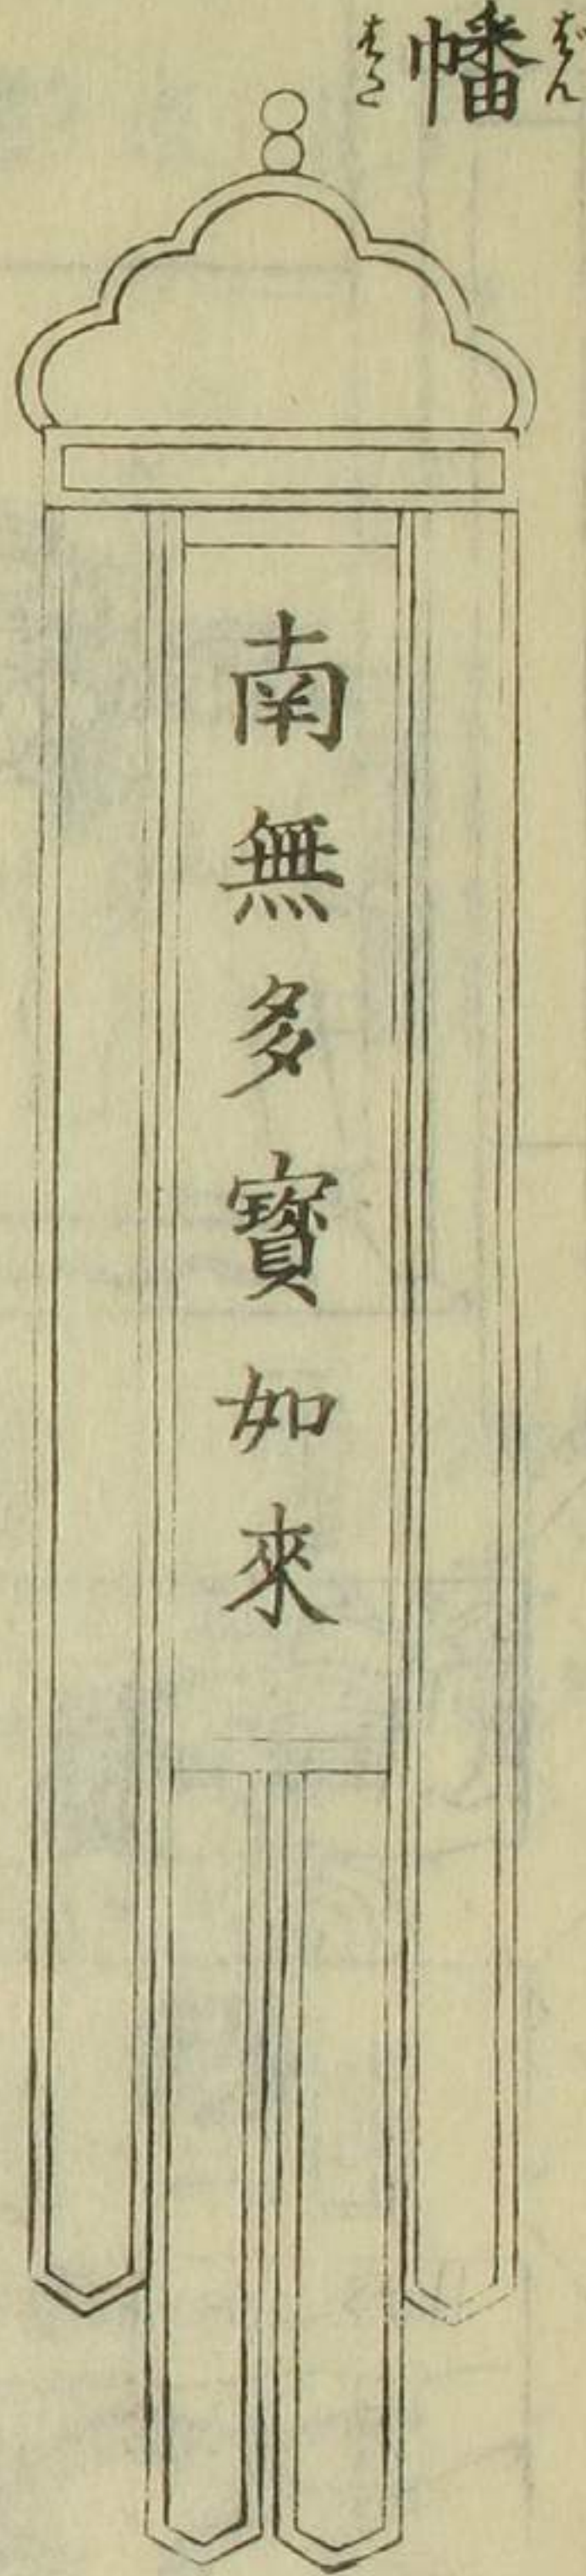 幡
ばん
はた
南無多寶如來